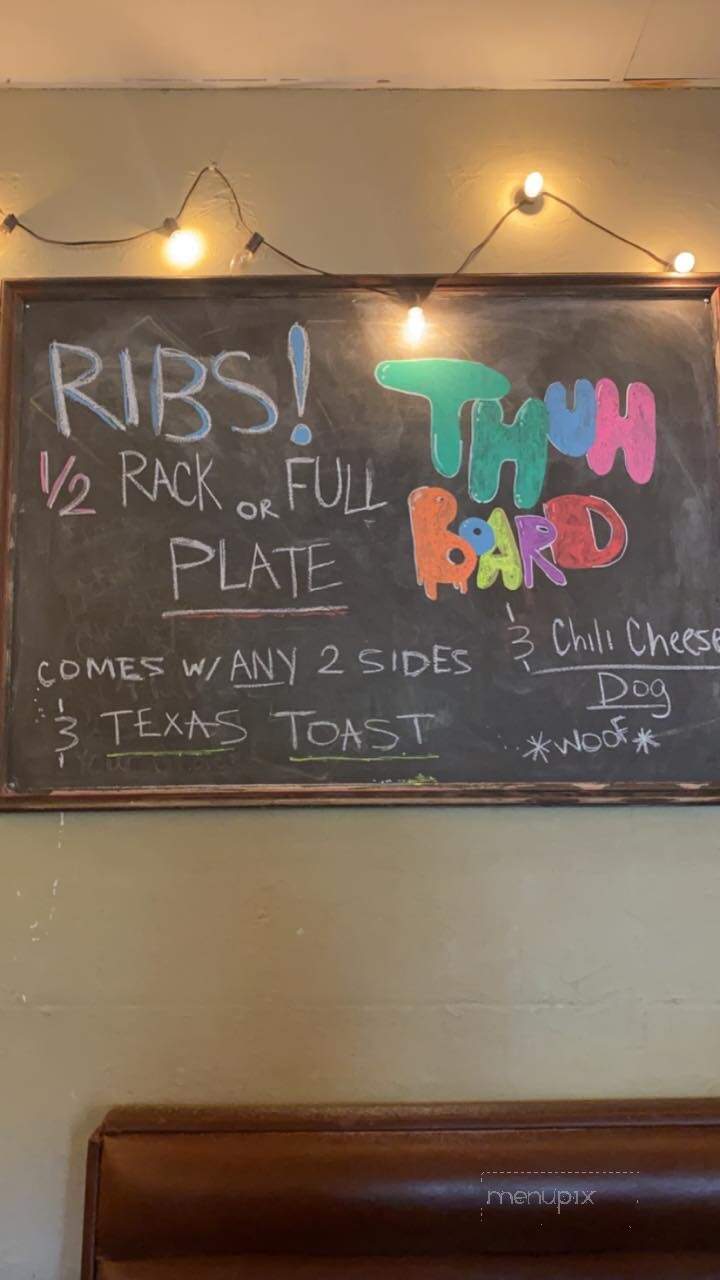 RIBS!
1/2 RACK OR FULL
PLATE
COMES W/ ANY 2 SIDES
& TEXAS TOAST
THUH
BOARD
& Chili Cheese
Dog
*WOOF*
menupix